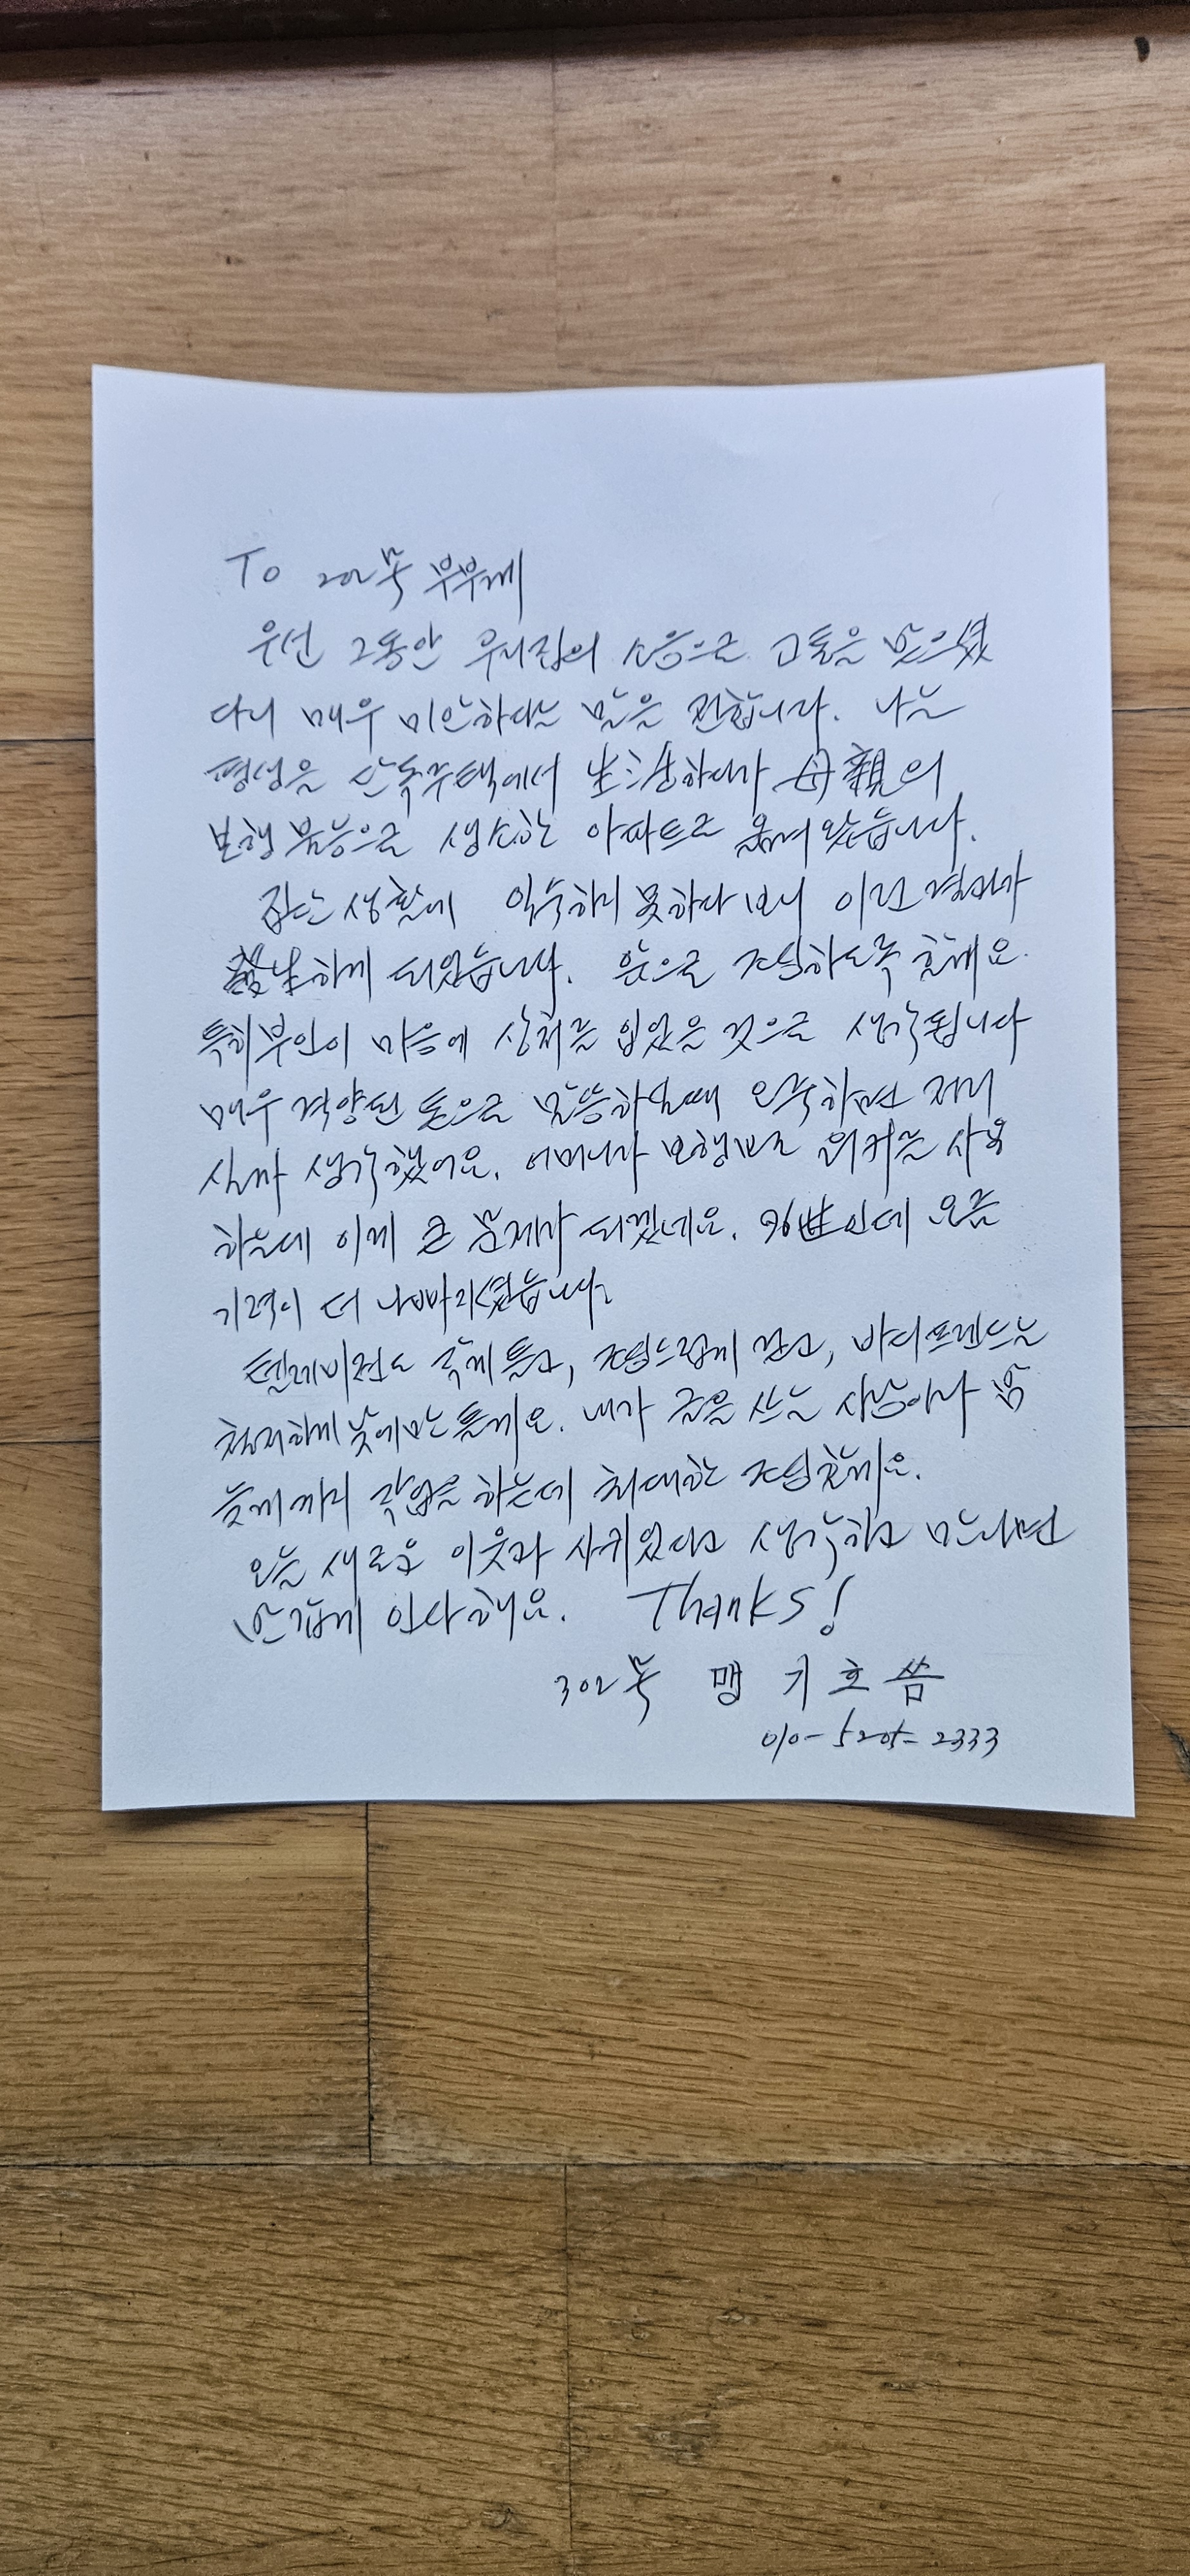 To 202号 부부께
우선 그동안 우리집의 소음으로 고통을 받으셨
다니 매우 미안하다는 말을 전합니다. 나는
평생을 단독주택에서 生活하다가 母親의
보행 불능으로 생소한 아파트로 옮겨 왔습니다.
집단 생활에 익숙하지 못하다 보니 이런 결과가
發生하게 되었습니다. 앞으로 조심하도록 할께요.
특히 부인이 마음에 상처를 입었을 것으로 생각됩니다
매우 격앙된 톤으로 말씀하실때 오죽하면 저러
실까 생각했어요. 어머니가 보행보조 워커를 사용
하는데 이게 큰 문제가 되겠네요. 96世인데 요즘
기력이 더 나빠지셨습니다.
텔레비전도 작게 틀고, 조심스럽게 걷고, 바디프렌드는
철저하게 낮에만 틀께요. 내가 글을 쓰는 사람이라 밤
늦게까지 작업을 하는데 최대한 조심할께요.
오늘 새로운 이웃과 사귀었다고 생각하고 만나면
반갑게 인사해요. Thanks!
302号 맹기호 씀
010-5205-2333